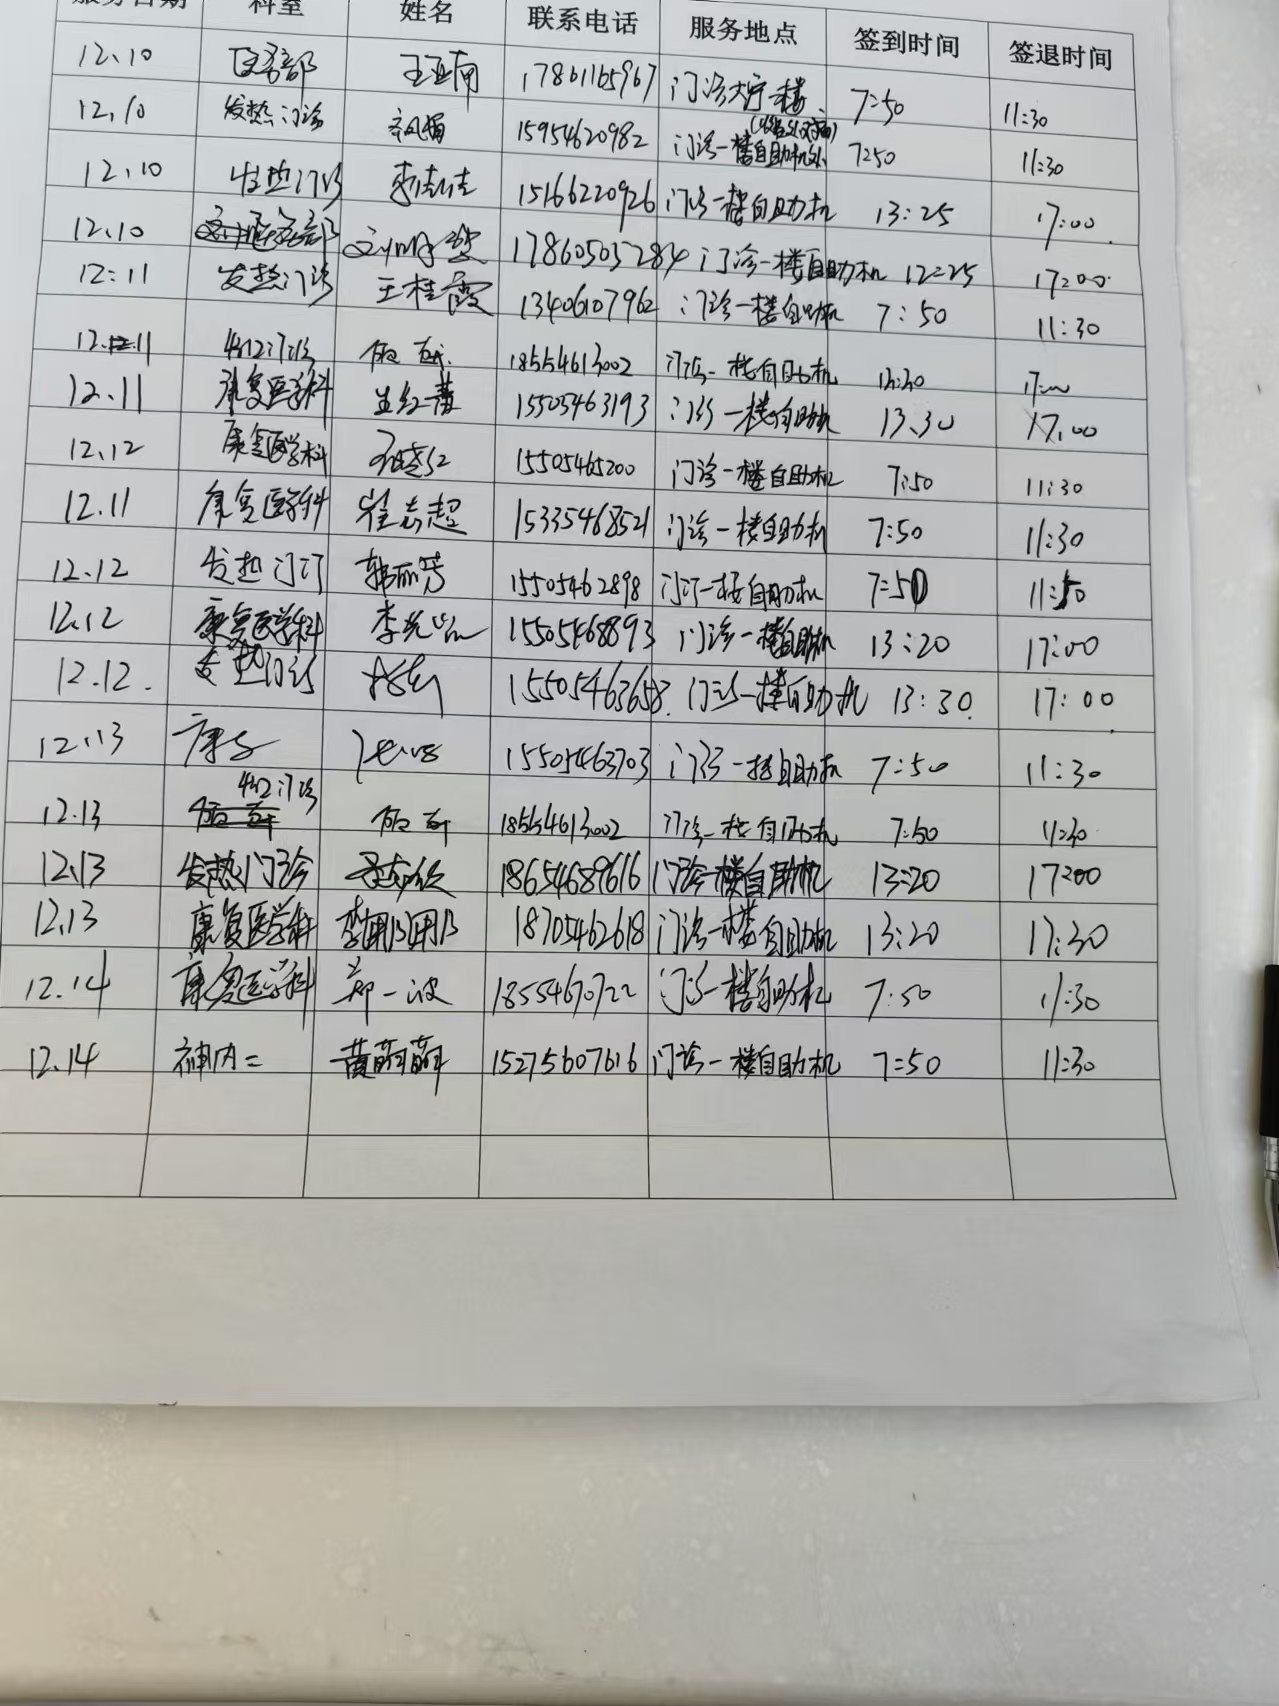 服务日期 科室 姓名 联系电话 服务地点 签到时间 签退时间
12.10 医务部 王亚南 17861165967 门诊大厅一楼 7:50 11:30
12.10 发热门诊 15954620982 门诊一楼自助机 7:50 11:30
12.10 发热门诊 李佳佳 15166220926 门诊一楼自助机 13:25 17:00
12.10 17860505284 门诊一楼自助机 12:25 17:00
12:11 发热门诊 王桂霞 13406107962 门诊一楼自助机 7:50 11:30
12.11 18554613002 门诊一楼自助机 13:30 17:00
12.11 康复医学科 15505463193 门诊一楼自助机 13.30 17.00
12.12 康复医学科 15505465200 门诊一楼自助机 7:50 11:30
12.11 康复医学科 崔志超 15335468521 门诊一楼自助机 7:50 11:30
12.12 发热门诊 韩丽芳 15505462898 门诊一楼自助机 7:50
12.12 康复医学科 15505468893 门诊一楼自助机 13:20 17:00
12.12. 发热门诊 15505463658. 门诊一楼自助机 13:30. 17:00
12.13 康复 15505463703 门诊一楼自助机 7:50 11:30
12.13 18554613002 门诊一楼自助机 7:50 11:30
12.13 发热门诊 18654689616 门诊一楼自助机 13:20 17:00
12.13 康复医学科 18705462618 门诊一楼自助机 13:20 17:30
12.14 康复医学科 郑一波 18554670722 门诊一楼自助机 7:50 11:30
12.14 神内二 黄萌萌 15275607616 门诊一楼自助机 7:50 11:30